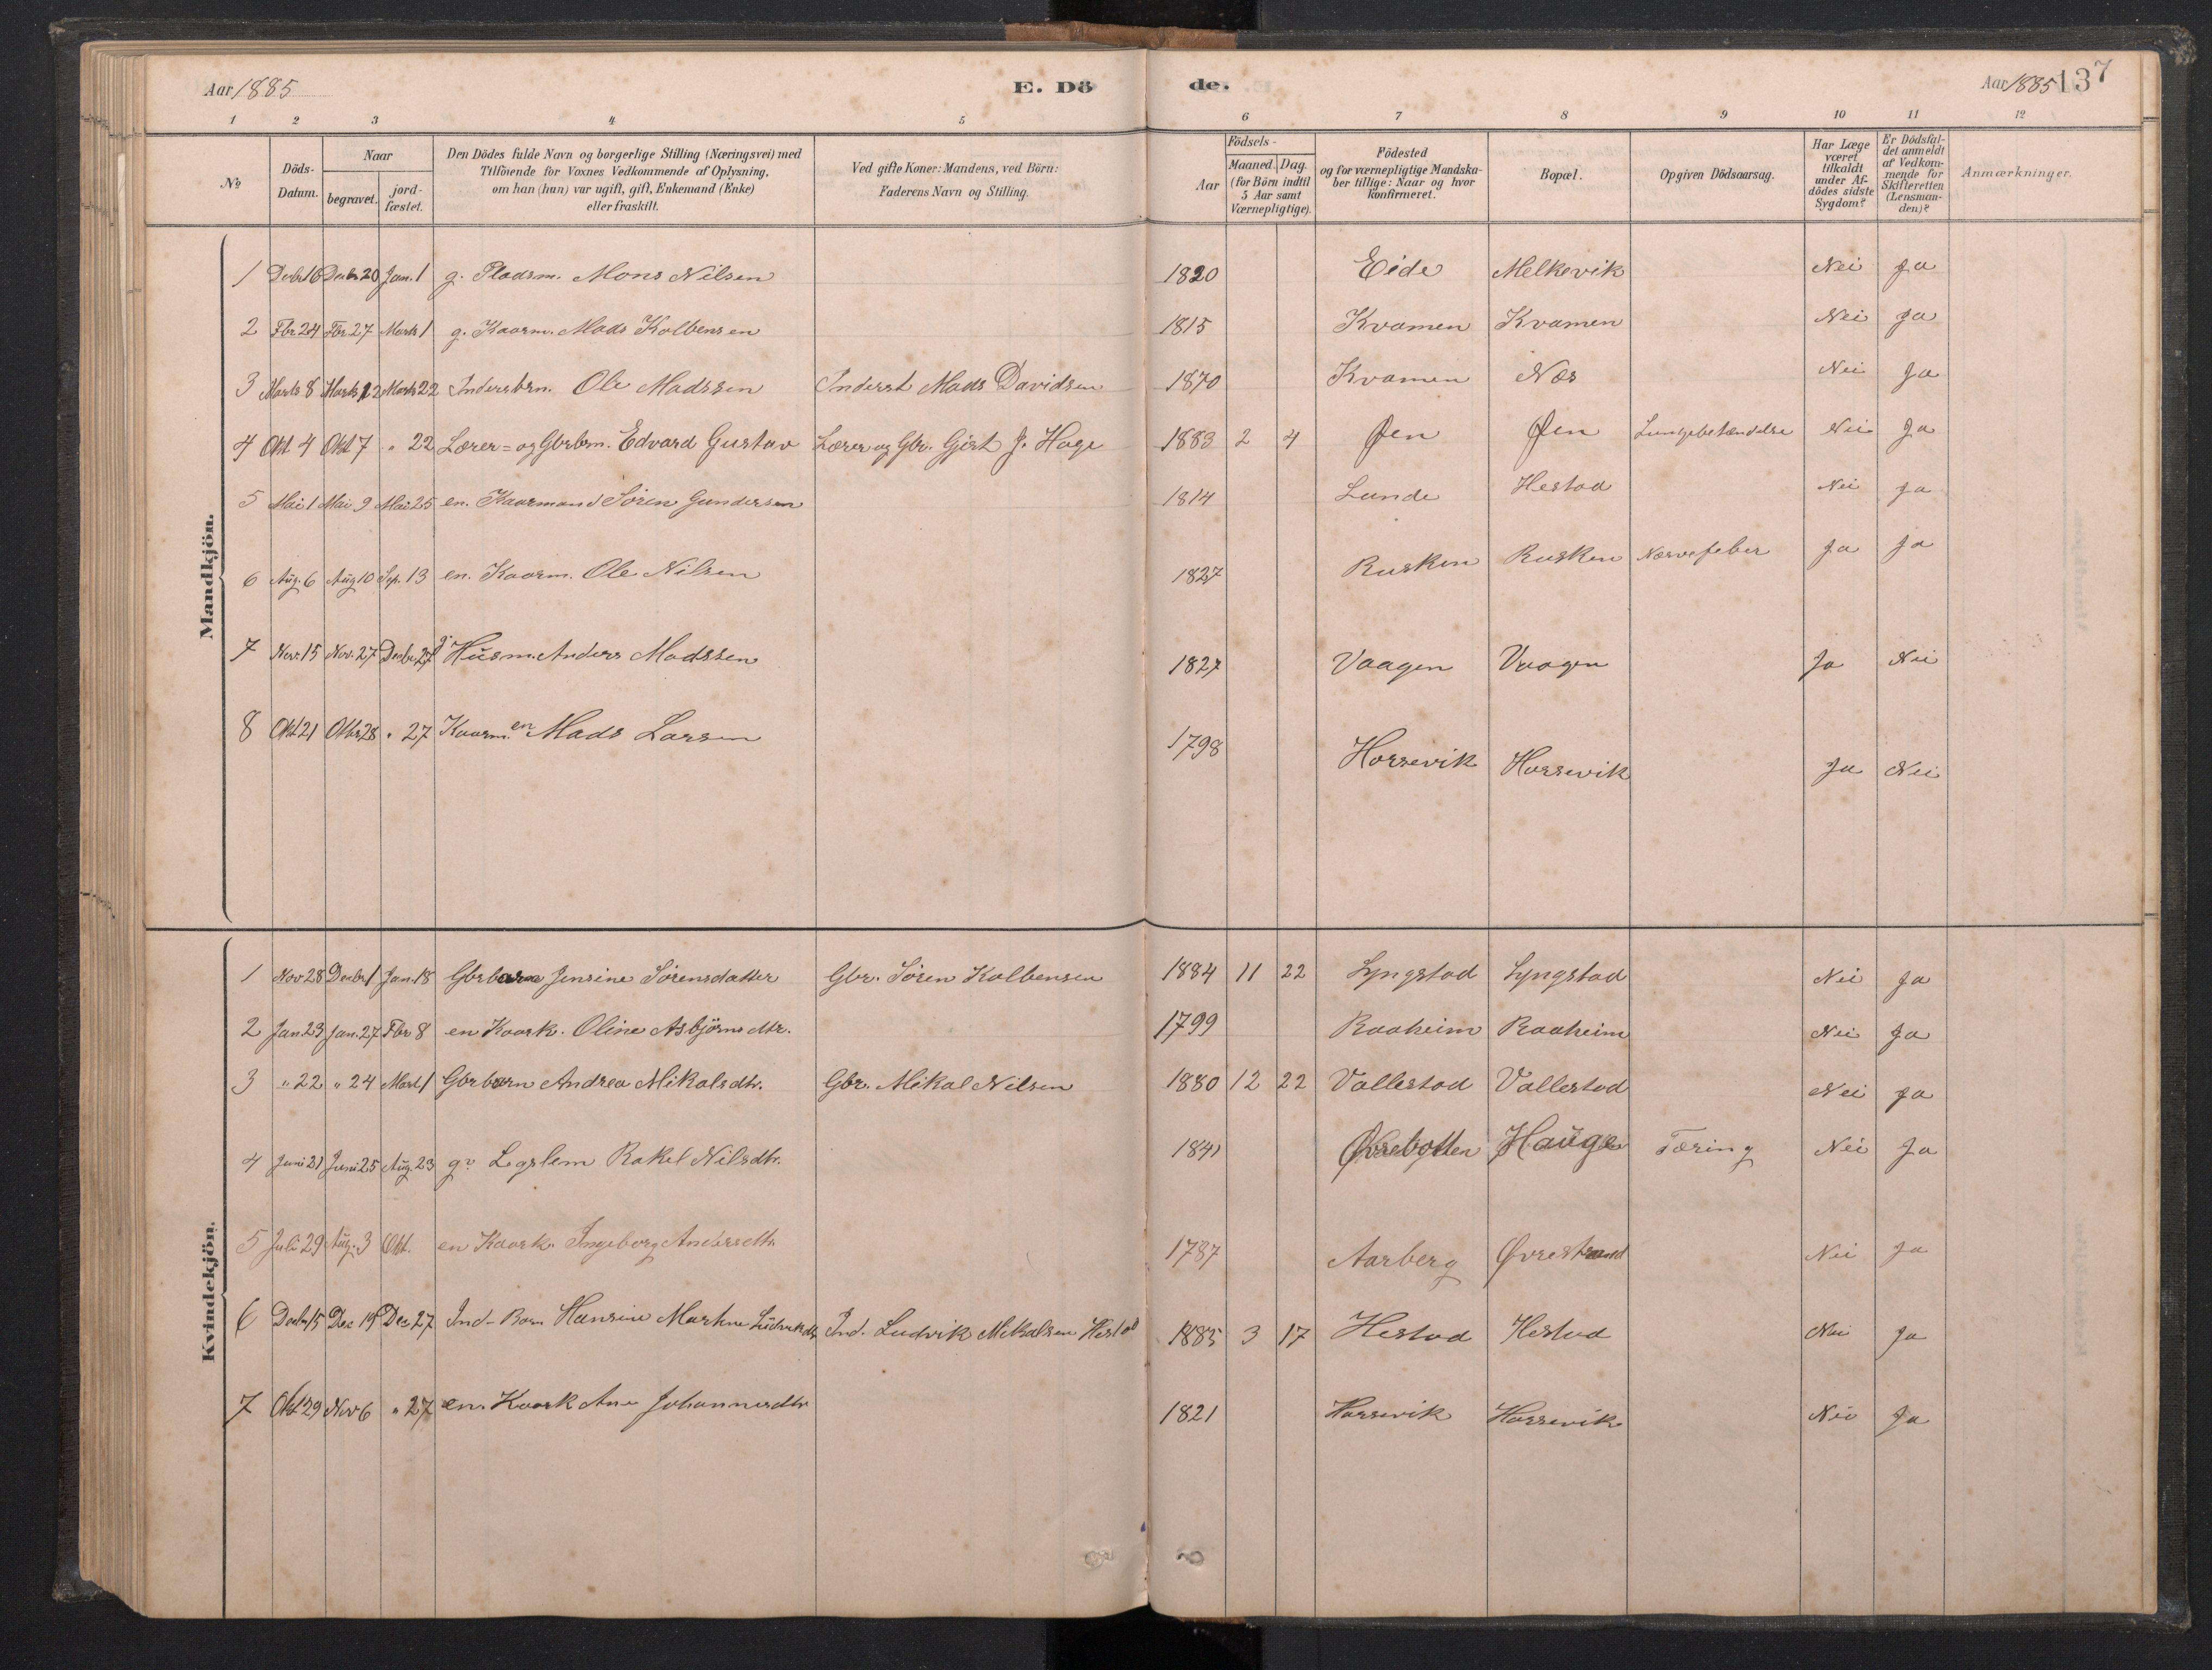 Aar 1885 E. Dö de. Aar 1885 137
1 2 3 4 5 6 7 8 9 10 11 12
No Döds-Datum. Naar begravet. jord-fæstet. Den Dödes fulde Navn og borgerlige Stilling (Næringsvei) med Tilföiende for Voxnes Vedkommende af Oplysning, om han (hun) var ugift, gift, Enkemand (Enke) eller fraskilt. Ved gifte Koner: Mandens, ved Börn: Faderens Navn og Stilling. Födsels- Aar Maaned. Dag. (for Börn indtil 5 Aar samt Værnepligtige). Födested og for værnepligtige Mandska-ber tillige: Naar og hvor konfirmeret. Bopæl. Opgiven Dödsaarsag. Har Læge været tilkaldt under Af-dödes sidste Sygdom? Er Dödsfal-det anmeldt af Vedkom-mende for Skifteretten (Lensman-den)? Anmærkninger.
Mandkjön.
1 Decbr 16 Decbr 20 Jan. 1 g. Pladsm. Mons Nilsen 1820 Eide Melkevik Nei Ja
2 Fbr 24 Fbr 27 Marts 1 g. Kaarm. Mads Kolbensen 1815 Kvamen Kvamen Nei Ja
3 Marts 8 Marts 12 Marts 22 Inderstbrn. Ole Madssen Inderst Mads Davidsen 1870 Kvamen Næs Nei Ja
4 Okt 4 Okt 7 " 22 Lærer= og Gbrbrn. Edvard Gustav Lærer og Gbr. Gjert J. Hage 1883 2 4 Øen Øen Lungebetændelse Nei Ja
5 Mai 1 Mai 9 Mai 25 en. Kaarmand Sören Gundersen 1814 Lunde Hestad Nei Ja
6 Aug. 6 Aug 10 Sep. 13 en. Kaarm. Ole Nilsen 1827 Rusken Rusken Nervefeber Ja Ja
7 Nov. 15 Nov. 27 Decbr. 27 g. Husm. Anders Madssen 1827 Vaagen Vaagen Ja Nei
8 Okt 21 Oktbr 28 " 27 Kaarm. en. Mads Larsen 1798 Horsevik Horsevik Ja Nei
Kvindekjön.
1 Nov 28 Decbr 1 Jan. 18 Gbrbarn Jensine Sörensdatter Gbr. Sören Kolbensen 1884 11 22 Lyngstad Lyngstad Nei Ja
2 Jan 23 Jan. 27 Fbr 8 en Kaark. Oline Asbjörns dtr. 1799 Raaheim Raaheim Nei Ja
3 " 22 " 24 Mart 1 Gbrbarn Andrea Mikalsdtr. Gbr. Mikal Nilsen 1880 12 22 Vallestad Vallestad Nei Ja
4 Juni 21 Juni 25 Aug. 23 g. Legslem Rakel Nilsdtr. 1841 Øvrebotten Hauge Tæring Nei Ja
5 Juli 29 Aug. 3 Okt. en Kaark. Ingeborg Andersdtr. 1787 Aarberg Øvrestrand Nei Ja
6 Decbr 15 Dec 19 Dec 27 Ind-Barn Hansine Martine Ludvikdtr Ind. Ludvik Mikalsen Hestad 1885 3 17 Hestad Hestad Nei Ja
7 Okt 29 Nov 6 " 27 en. Kaark Ane Johannesdtr 1821 Horsevik Horsevik Nei Ja